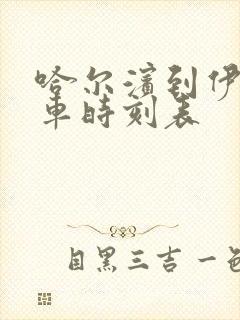 哈尔滨到伊
车时刻表
自黑三吉一色